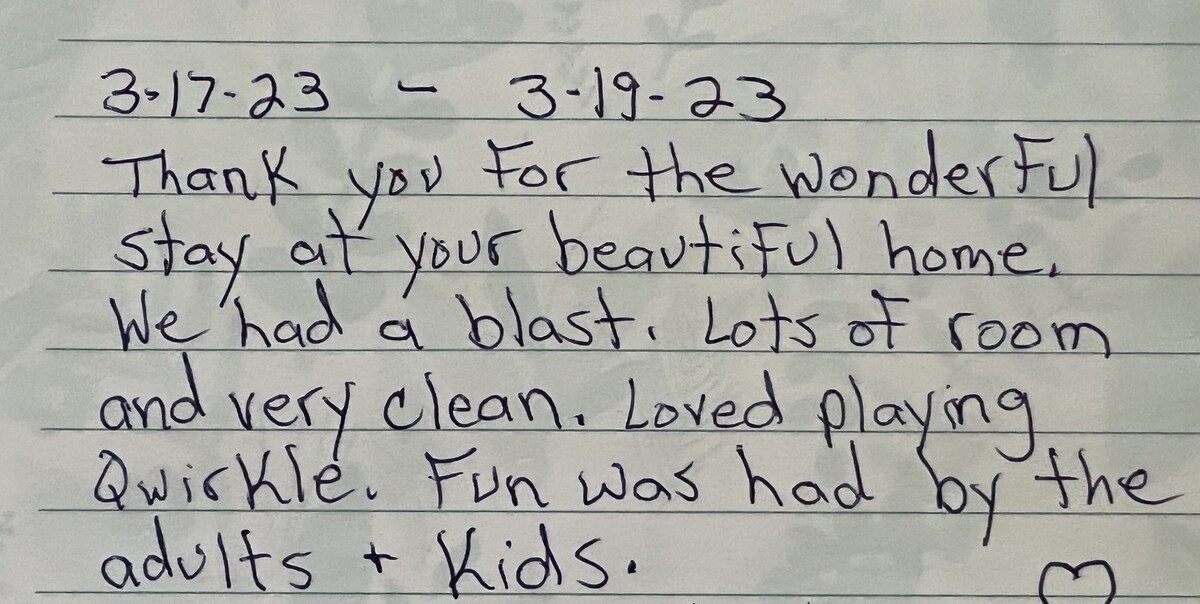 3-17-23 - 3-19-23
Thank you for the wonderful
stay at your beautiful home.
We had a blast. Lots of room
and very clean. Loved playing
Qwirkle. Fun was had by the
adults + Kids.